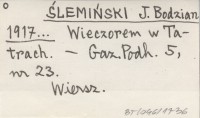 ŚLEMIŃSKI J. Bodzian
1917... Wieczorem w Ta-
trach. — Gaz. Podh. 5,
nr 23.
Wiersz.